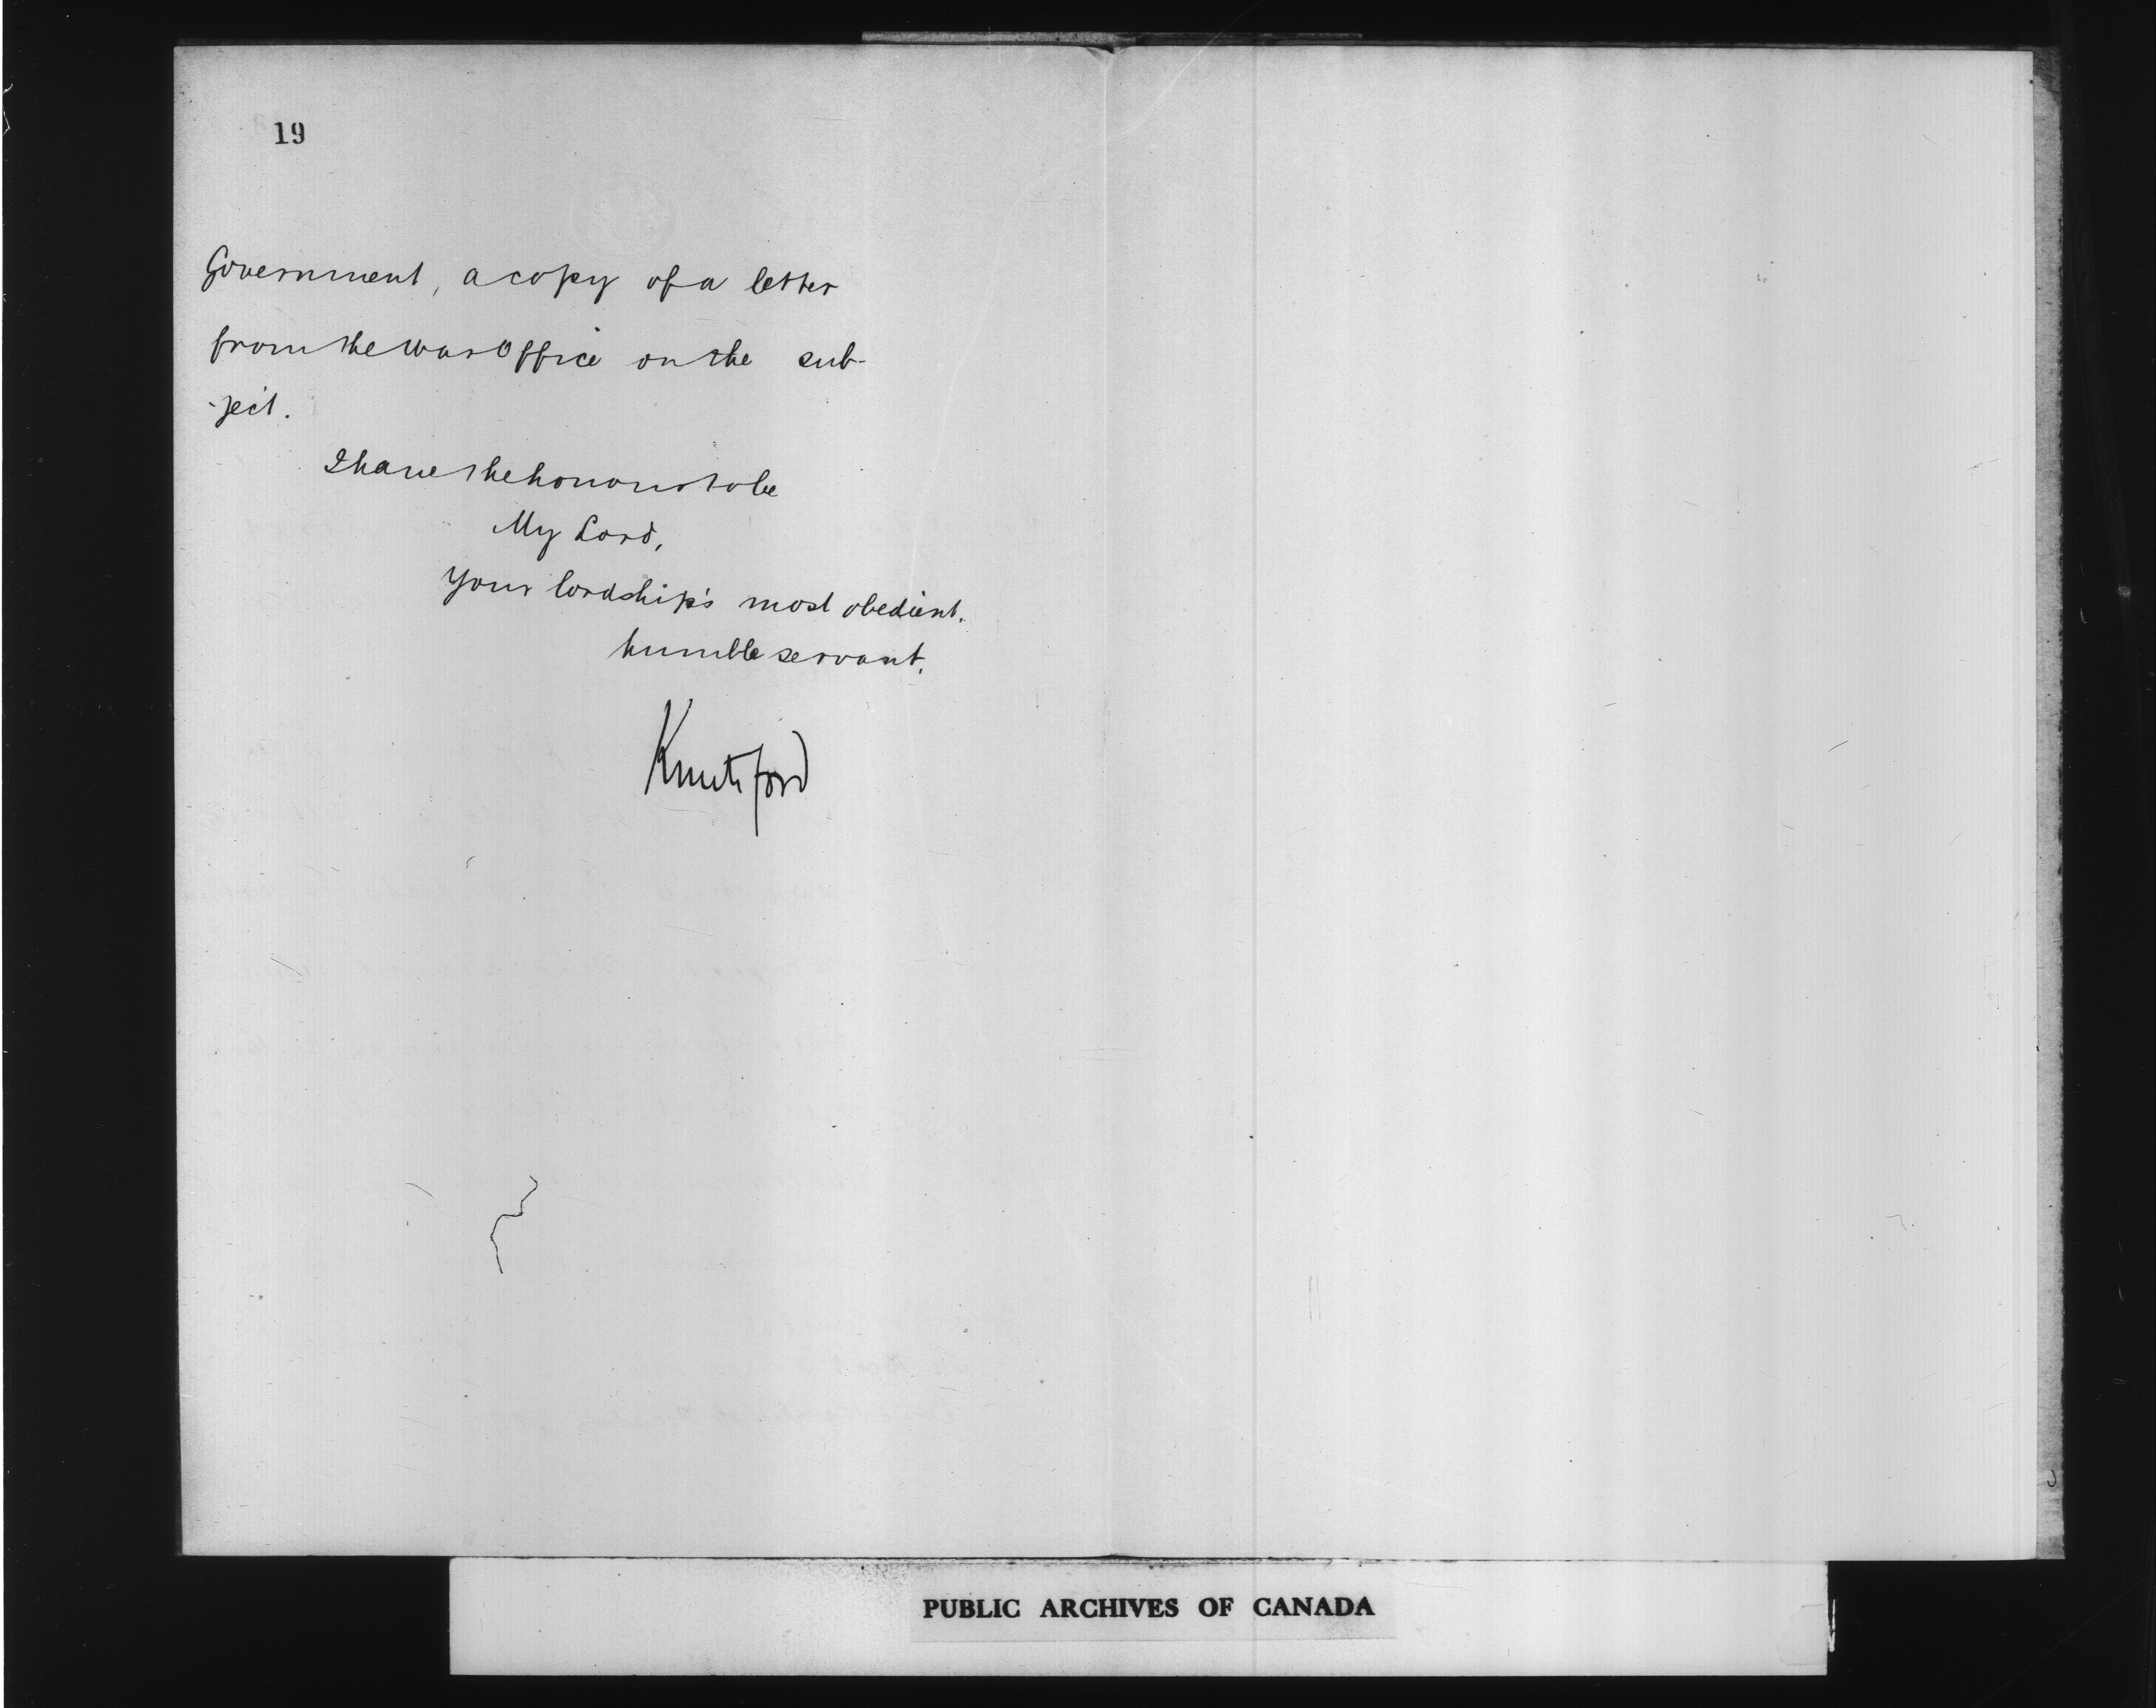 19
Government, a copy of a letter
from the War Office on the sub-
-ject.
I have the honour to be
My Lord,
Your lordship's most obedient.
humble servant.
Knutsford
PUBLIC ARCHIVES OF CANADA